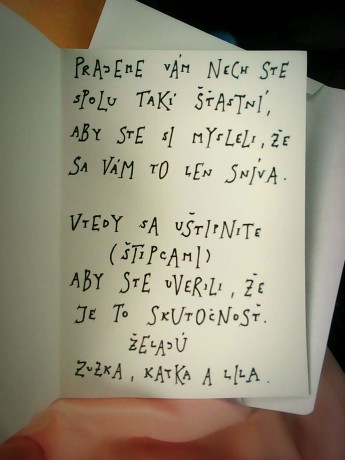 PRAJEME VÁM NECH STE
SPOLU TAKÍ ŠŤASTNÍ,
ABY STE SI MYSLELI, ŽE
SA VÁM TO LEN SNÍVA.
VTEDY SA UŠTIPNITE
(ŠTIPCAMI)
ABY STE UVERILI, ŽE
JE TO SKUTOČNOSŤ.
ŽELAJÚ
ZUZKA, KATKA A LILA.